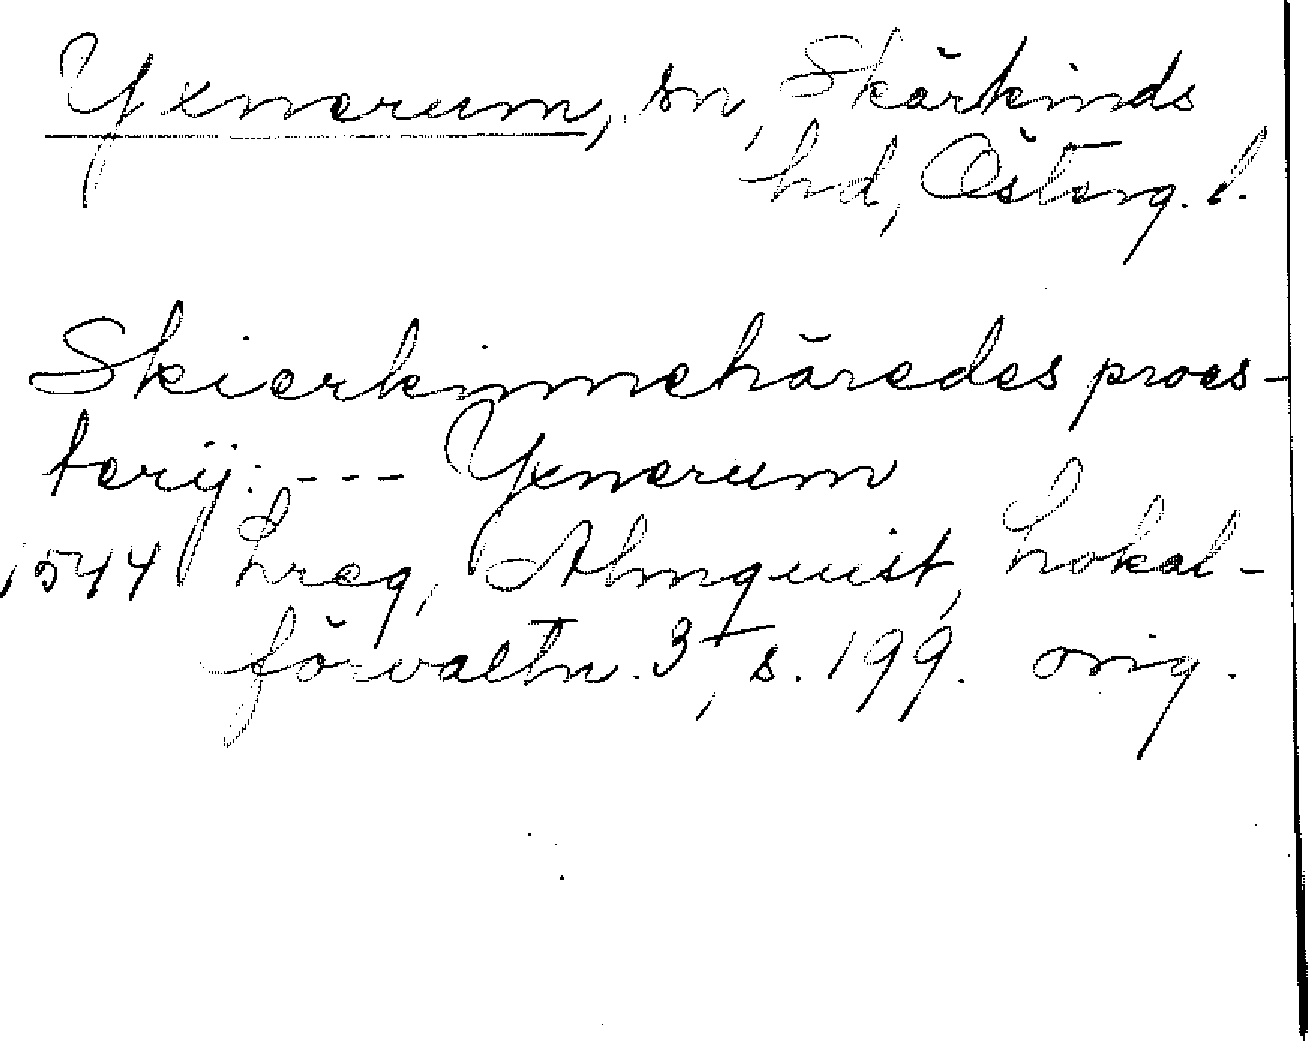 Yxnerum, sn, Skärkinds
hd, Österg. l.
Skierkinnehäredes proes-
terij: --- Yxnerum
1544 Lreg, Almquist, Lokal-
förvaltn. 3, s. 199. orig.